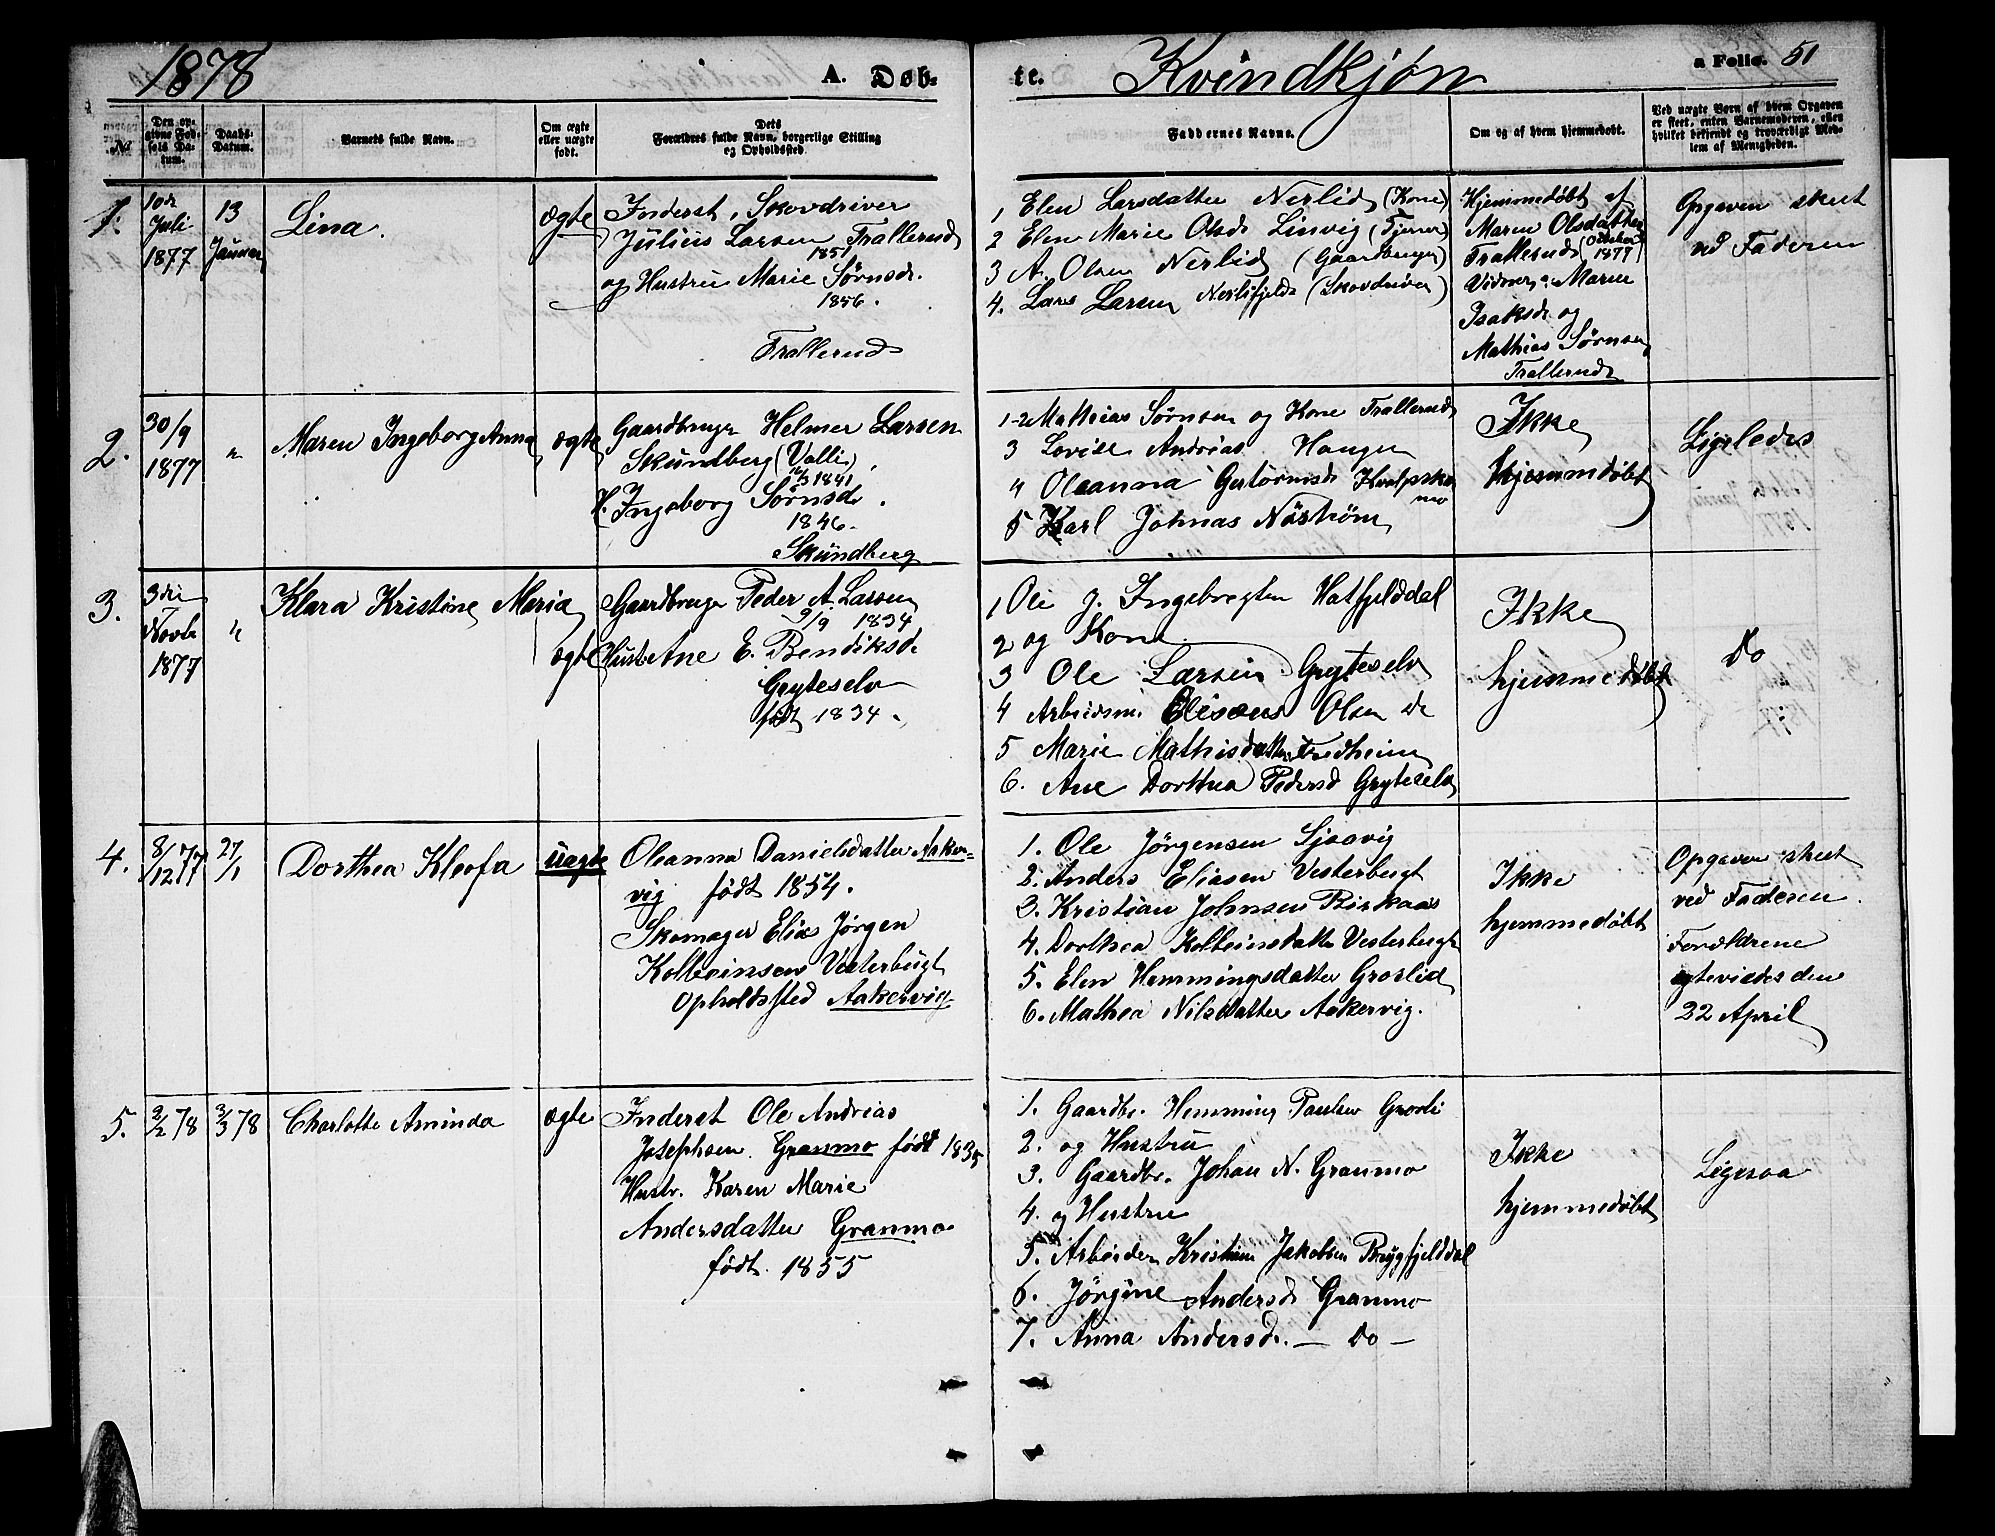 1878
A. Døb-
te.
Kvindkjøn
a Folio. 51
No
Den op-
givne Fød-
sels Da-
tum.
Daabs-
Datum.
Barnets fulde Navn.
Om ægte
eller uægte
født.
Dets
Forældres fulde Navn, borgerlige Stilling
og Opholdssted.
Faddernes Navne.
Om og af hvem hjemmedøbt.
Ved uægte Børn af hvem Opgaven
er skeet, enten Barnemoderen, eller
hvilket bekjendt og troværdigt Med-
lem af Menigheden.
1.
10de
Juli
1877
13
Januar
Lina.
ægte
Inderst, Skovdriver
Julius Larsen Trallerud
1851
og Hustru Marie Sørnsd.
1856.
Trallerud
1 Elen Larsdatter Nerlid (Kone)
2 Elen Marie Olsd Linvig (Tjener)
3 A. Olsen Nerlid (Gaardbruger)
4. Lars Larsen Nerlifjeld (Skovdriver)
Hjemmedøbt af
Maren Olsdatter
Trallerud (October
1877
Vidner: Maren
Isaksd og
Mathias Sørnsen
Trallerud
Opgaven skeet
ved Faderen
2.
30/9
1877
"
Maren Ingeborg Anna
ægte
Gaardbruger Helmer Larsen
Skundberg (Valli)
1841
H. Ingeborg Sørnsd.
1846.
Skundberg
1-2 Mathias Sørnsen og Kone Trallerud
3 Lovise Andreas. Haugen
4 Oleanna
mo
5 Karl Johnas Nøstrøm
Ikke
hjemmedøbt
Ligeledes
3.
3die
Novbr
1877
"
Klara Kristine Maria
ægte
Gaardbruger Peder A. Larsen
9/9 1834
Hustr Ane E. Bendiksd.
Gryteselv
født 1834.
1 Ole J. Ingebregtsen Hatfjelddal
2 og Kone
3 Ole Larsen Gryteselv
4 Arbeidsm. Eliseus Olsen do
5 Marie Mathisdatter Fredheim
6. Ane Dorthea Pedersd Gryteselv
Ikke
hjemmedøbt
Do
4.
8/12 77
27/1
Dorthea Kleofa
uægte
Oleanna Danielsdatter Aaker-
vig født 1854.
Skomager Elias Jørgen
Kolbeinsen Vesterbugt
Opholdssted Aakervig
1. Ole Jørgensen Sjaavig
2. Anders Eliasen Vesterbugt
3. Kristian Johnsen Birkaas
4. Dorthea Kolbeinsdatter Vesterbugt
5. Elen Hemmingsdatter Groslid
6. Mathea Nilsdatter Aakervig.
Ikke
hjemmedøbt
Opgaven skeet
ved Faderen.
Forældrene
egteviedes den
22 April
5.
2/2 78
3/3 78
Charlotte Aminda
ægte
Inderst Ole Andreas
Josephsen. Granmo født 1835
Hustr. Karen Marie
Andersdatter Granmo
født. 1855
1. Gaardbr. Hemming Paulsen Grovli
2. og Hustru
3. Gaardbr. Johan N. Granmo
4. og Hustru
5. Arbeider Kristian Jakobsen Brygfjelddal
6. Jørgine Andersd. Granmo
7. Anna Andersd. — Do —
Ikke
hjemmedøbt
Ligesaa